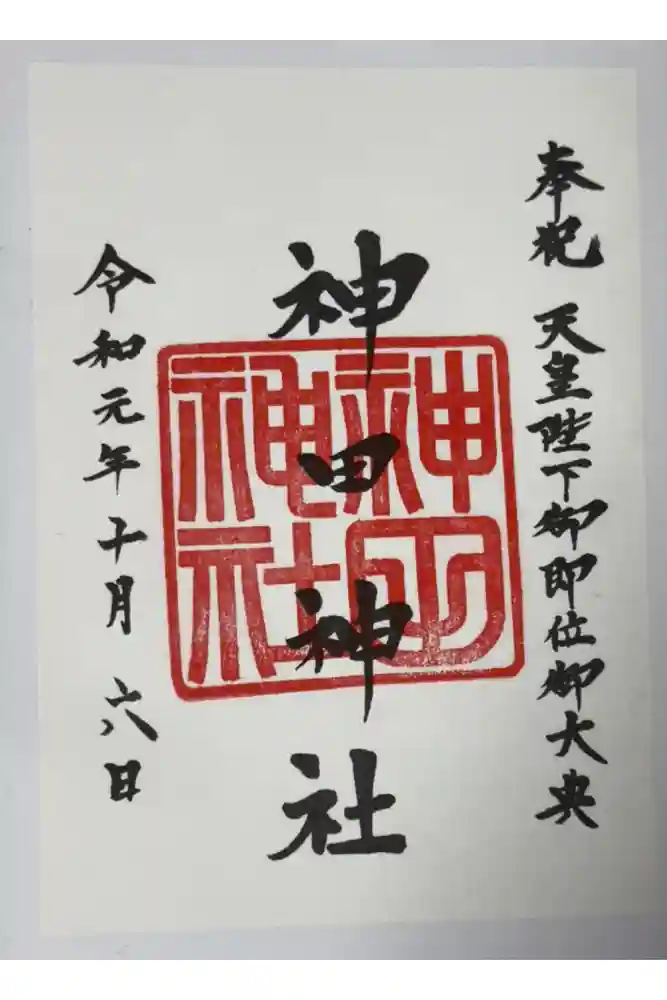 奉祝 天皇陛下御即位御大典
神田神社
神田
神社
令和元年十月 六日